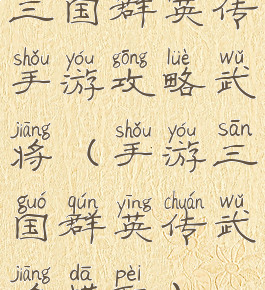 三国群英传
shǒu yóu gōng lüè wǔ
手游攻略武
jiāng shǒu yóu sān
将（手游三
guó qún yīng chuán wǔ
国群英传武
jiāng dā pèi